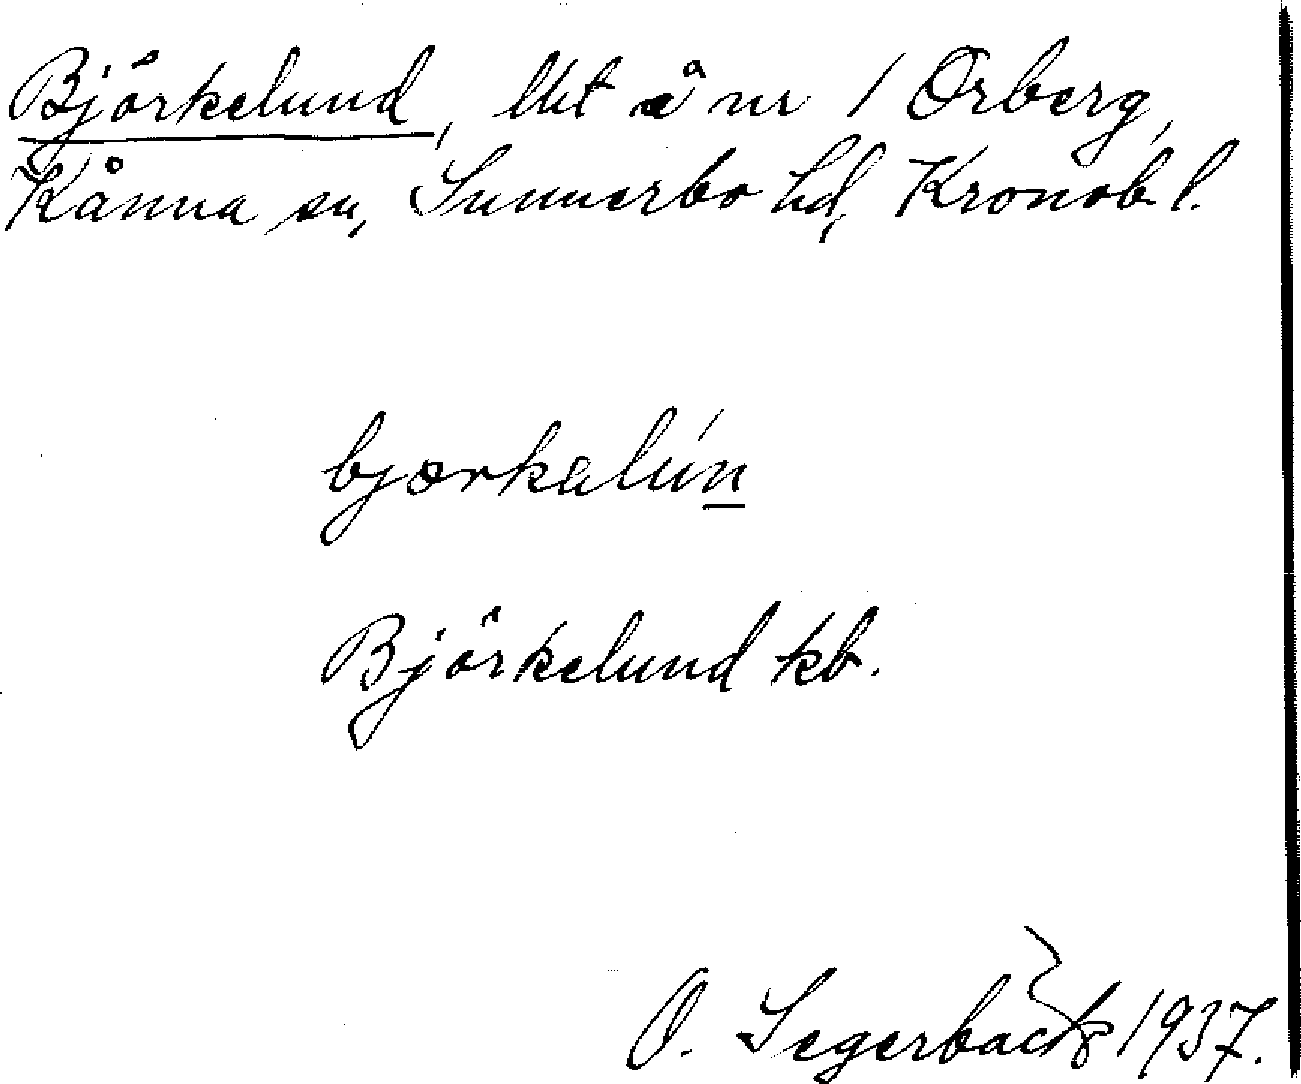 Björkelund, lht å nr 1 Örberg,
Kånna sn, Sunnerbo hd, Kronob. l.
bjørkalún
Björkelund kb.
O. Segerback 1937.